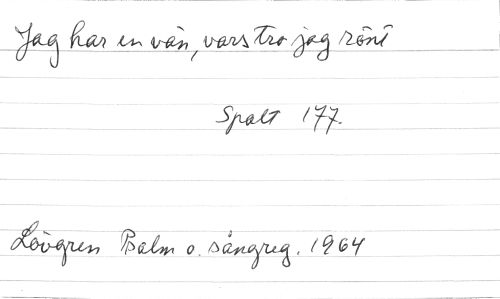 Jag har en vän, vars tro jag rönt
Spalt 177.
Lövgren Psalm o. sångreg. 1964